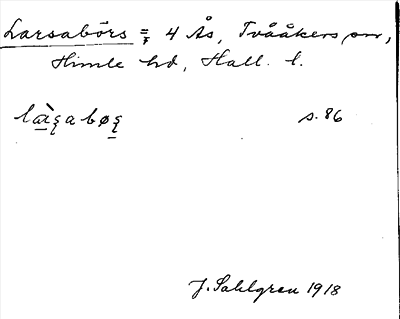 Larsabörs = 4 Ås, Tvååkers sn,
Himle hd, Hall. l.
làʂabøʂ s. 86
J. Sahlgren 1918